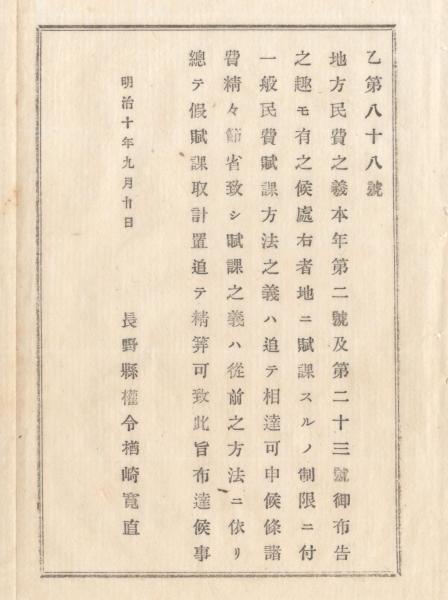 乙第八十八號
地方民費之義本年第二號及第二十三號御布告
之趣モ有之候處右者地ニ賦課スルノ制限ニ付
一般民費賦課方法之義ハ追テ相達可申候條諸
費精々節省致シ賦課之義ハ從前之方法ニ依リ
總テ假賦課取計置追テ精筭可致此旨布達候事
明治十年九月廿日
長野縣權令楢崎寛直